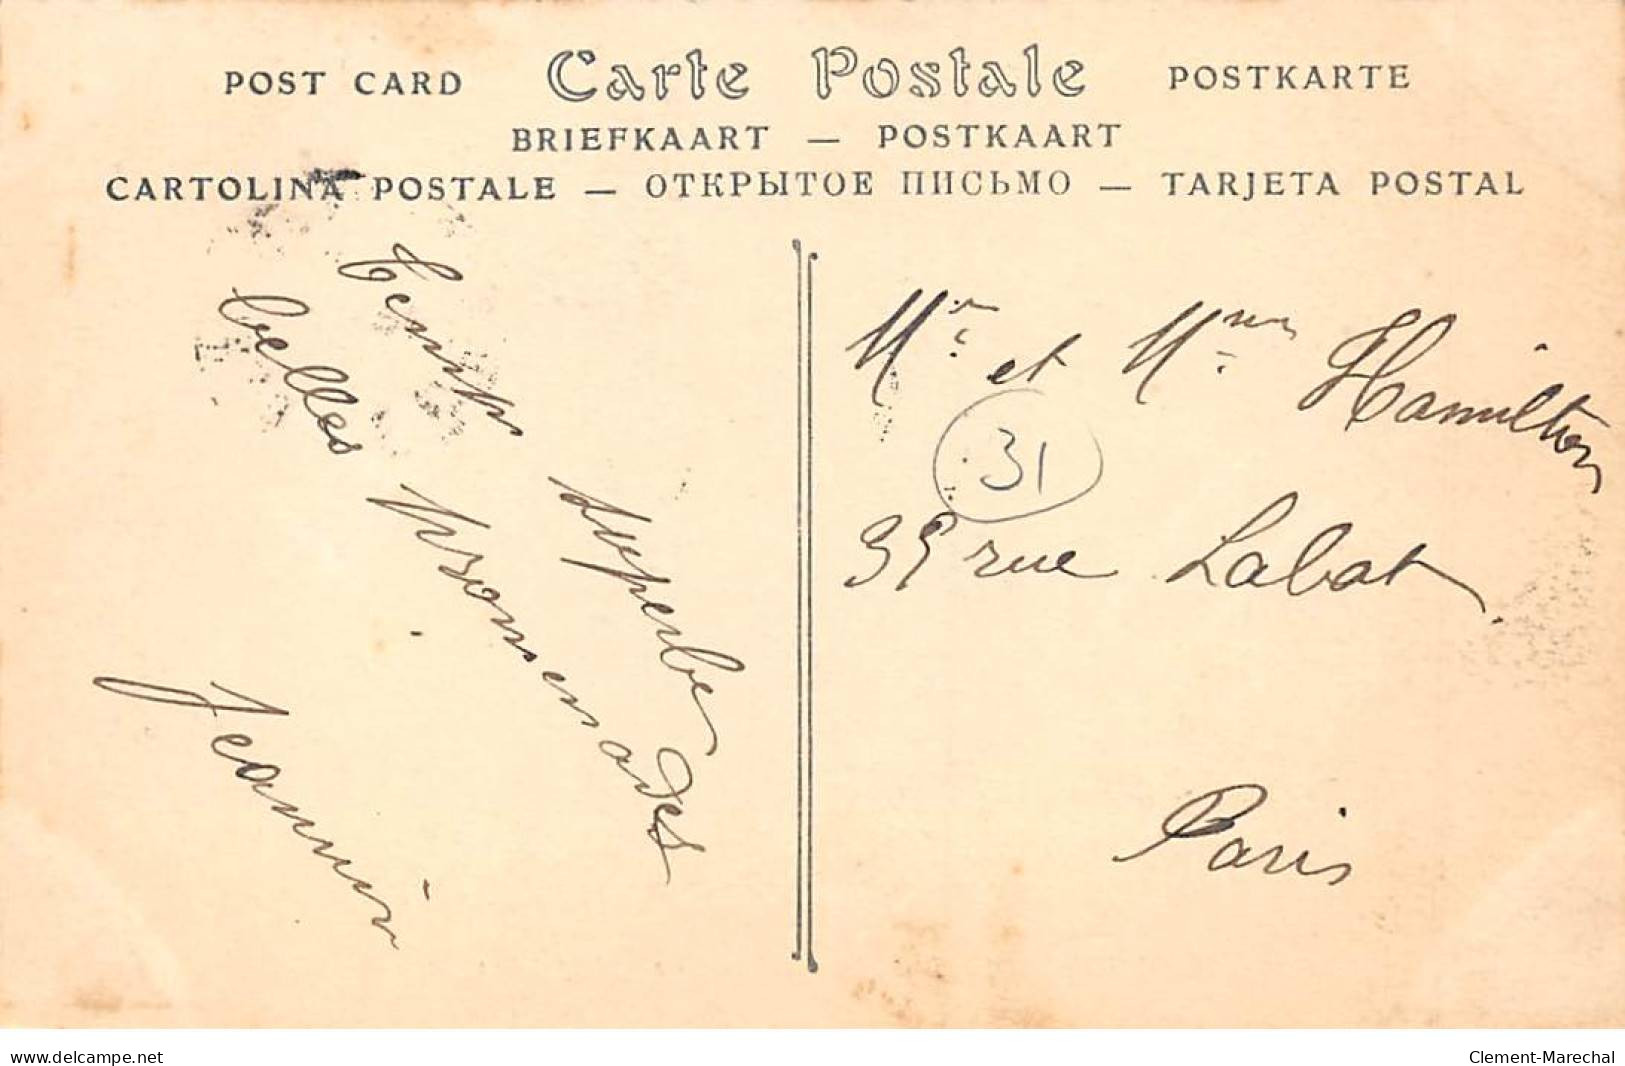 POST CARD Carte Postale POSTKARTE
BRIEFKAART — POSTKAART
CARTOLINA POSTALE — ОТКРЫТОЕ ПИСЬМО — TARJETA POSTAL
Temps superbe
belles promenades
Jeannin
Mr et Mme Hamilton
31
35 rue Labat.
Paris
www.delcampe.net
Clement-Marechal